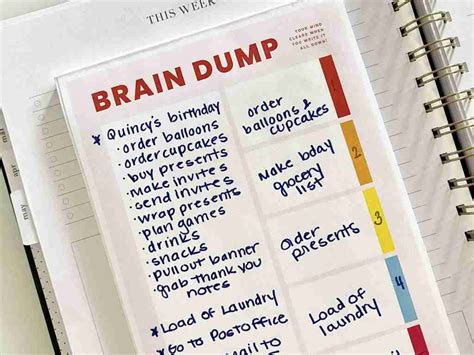 THIS WEEK
BRAIN DUMP
YOUR MIND
CLEARS WHEN
YOU WRITE IT
ALL DOWN!
* Quincy's birthday
· order balloons
· order cupcakes
· buy presents
· make invites
· send invites
· wrap presents
· plan games
· drinks
· snacks
· pull out banner
· grab thank you
notes
* Load of Laundry
* Go to Post office
mail to
order
balloons &
cupcakes
1
Make bday
grocery
list
2
Order
presents
3
Load of
laundry
4